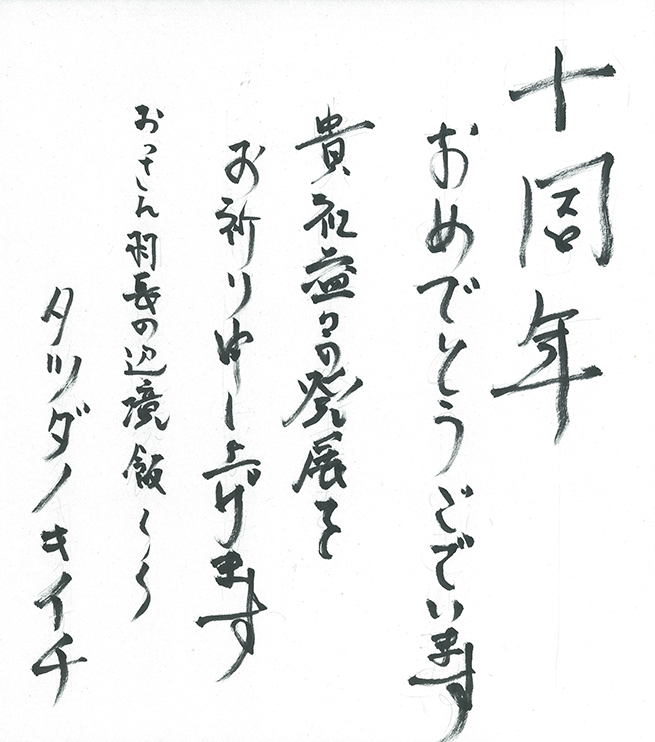 十周年
おめでとうございます
貴社益々の発展を
お祈り申し上げます
おっさん村長の辺境飯くらし
タツダノキイチ